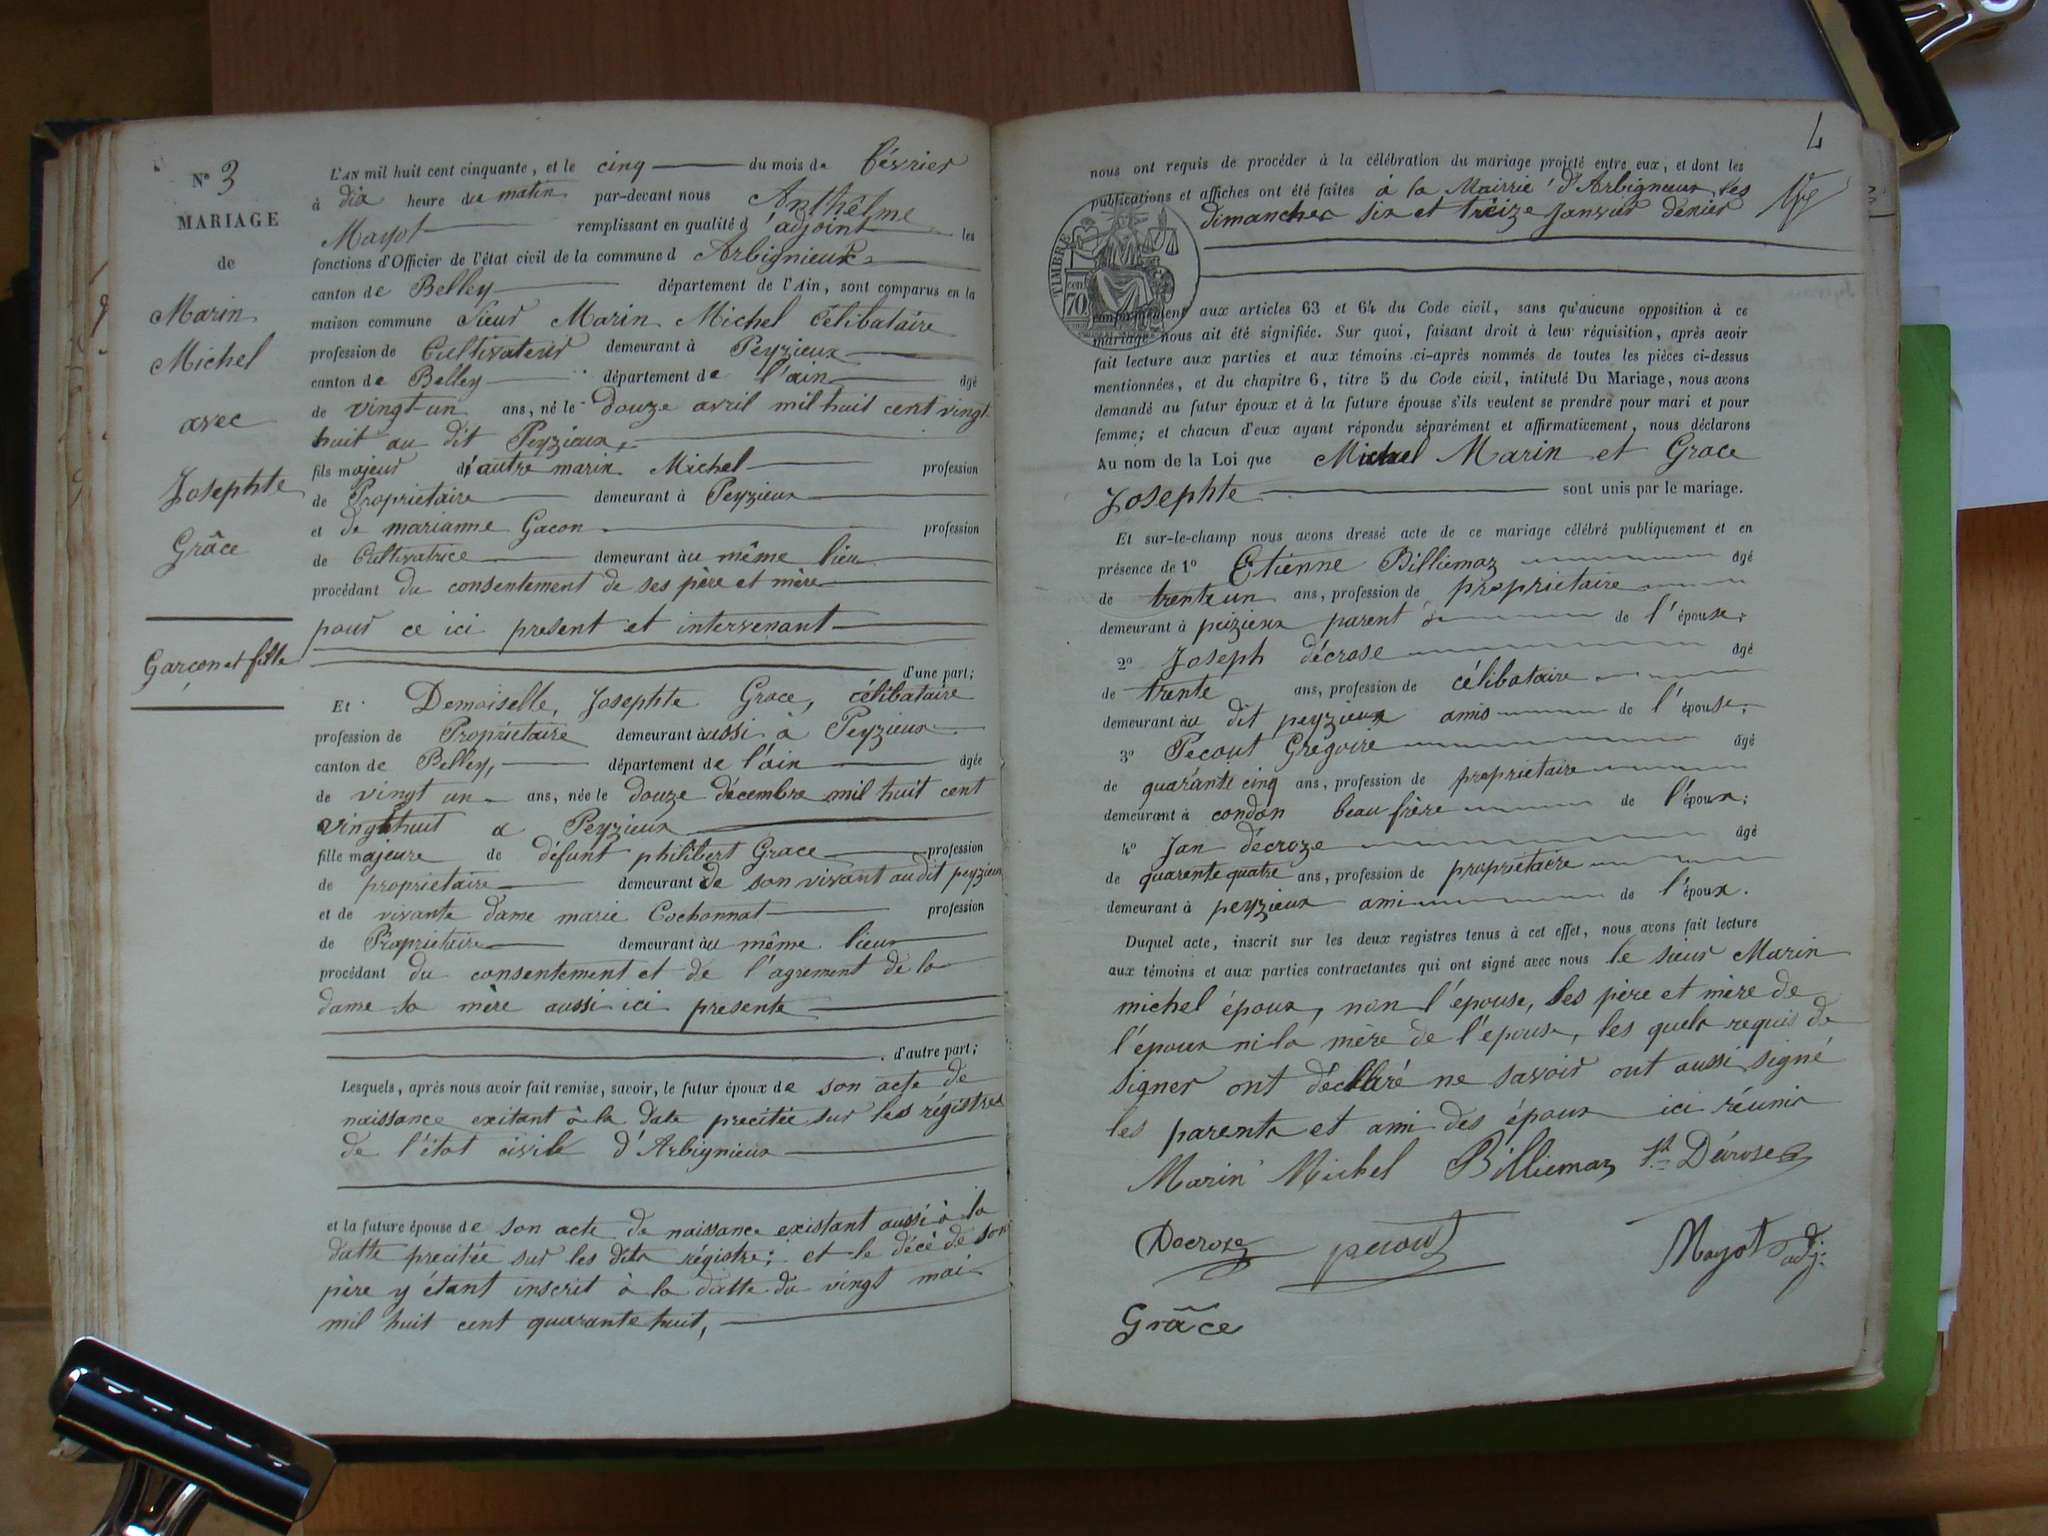 Nº 3
MARIAGE
de
Marin
Michel
avec
Josephte
Grâce
Garçon et fille
L'AN mil huit cent cinquante, et le cinq du mois de février
à dix heure du matin par-devant nous Anthêlme
Mayot remplissant en qualité d'adjoint les
fonctions d'Officier de l'état civil de la commune d Arbignieux
canton de Belley département de l'ain, sont comparus en la
maison commune Sieur Marin Michel célibataire
profession de Cultivateur demeurant à Peyzieux
canton de Belley département de l'ain âgé
de vingt-un ans, né le douze avril mil huit cent vingt
huit au dit Peyzieux,
fils majeur d'autre marin Michel profession
de Propriétaire demeurant à Peyzieux
et de marianne Gacon profession
de Cultivatrice demeurant au même lieu
procédant du consentement de ses père et mère
pour ce ici present et intervenant
d'une part;
Et Demoiselle, Josephte Grace, célibataire
profession de Propriétaire demeurant aussi à Peyzieux
canton de Belley, département de l'ain âgée
de vingt un ans, née le douze décembre mil huit cent
vingt huit a Peyzieux
fille majeure de défunt philibert Grace profession
de propriétaire demeurant de son vivant au dit peyzieux
et de vivante dame marie Cochonnat profession
de Propriétaire demeurant au même lieux
procédant du consentement et de l'agrement de la
dame sa mère aussi ici presente
d'autre part;
Lesquels, après nous avoir fait remise, savoir, le futur époux de son acte de
naissance exitant à la date precitée sur les régistres
de l'état civile d'Arbignieux
et la future épouse de son acte de naissance existant aussi à la
datte precitée sur les dits régistre; et le décè de son
père y étant inscrit à la datte du vingt mai
mil huit cent quarante huit,
4
nous ont requis de procéder à la célébration du mariage projeté entre eux, et dont les
publications et affiches ont été faites à la Mairrie d'Arbignieux les
dimanches six et treize Janvier dernier
TIMBRE
70
conformément aux articles 63 et 64 du Code civil, sans qu'aucune opposition à ce
mariage nous ait été signifiée. Sur quoi, faisant droit à leur réquisition, après avoir
fait lecture aux parties et aux témoins ci-après nommés de toutes les pièces ci-dessus
mentionnées, et du chapitre 6, titre 5 du Code civil, intitulé Du Mariage, nous avons
demandé au futur époux et à la future épouse s'ils veulent se prendre pour mari et pour
femme; et chacun d'eux ayant répondu séparément et affirmativement, nous déclarons
Au nom de la Loi que Michel Marin et Grace
Josephte sont unis par le mariage.
Et sur-le-champ nous avons dressé acte de ce mariage célébré publiquement et en
présence de 1º Etienne Billiemaz âgé
de trente un ans, profession de propriétaire
demeurant à peizieux parent de l'épouse,
2º Joseph décrose âgé
de trente ans, profession de célibataire
demeurant au dit peyzieux amis de l'épouse,
3º Pecout Gregoire âgé
de quarante cinq ans, profession de propriétaire
demeurant à condon beau frère de l'époux;
4º Jan décroze âgé
de quarente quatre ans, profession de propriétaire
demeurant à peyzieux ami de l'époux.
Duquel acte, inscrit sur les deux registres tenus à cet effet, nous avons fait lecture
aux témoins et aux parties contractantes qui ont signé avec nous le sieur Marin
michel époux, non l'épouse, les père et mère de
l'époux ni la mère de l'épouse, les quels requis de
signer ont déclaré ne savoir ont aussi signé
les parents et ami des époux ici réunis
Marin Michel Billiemaz Décrose
Decroze pecout Mayot adj.
Grâce